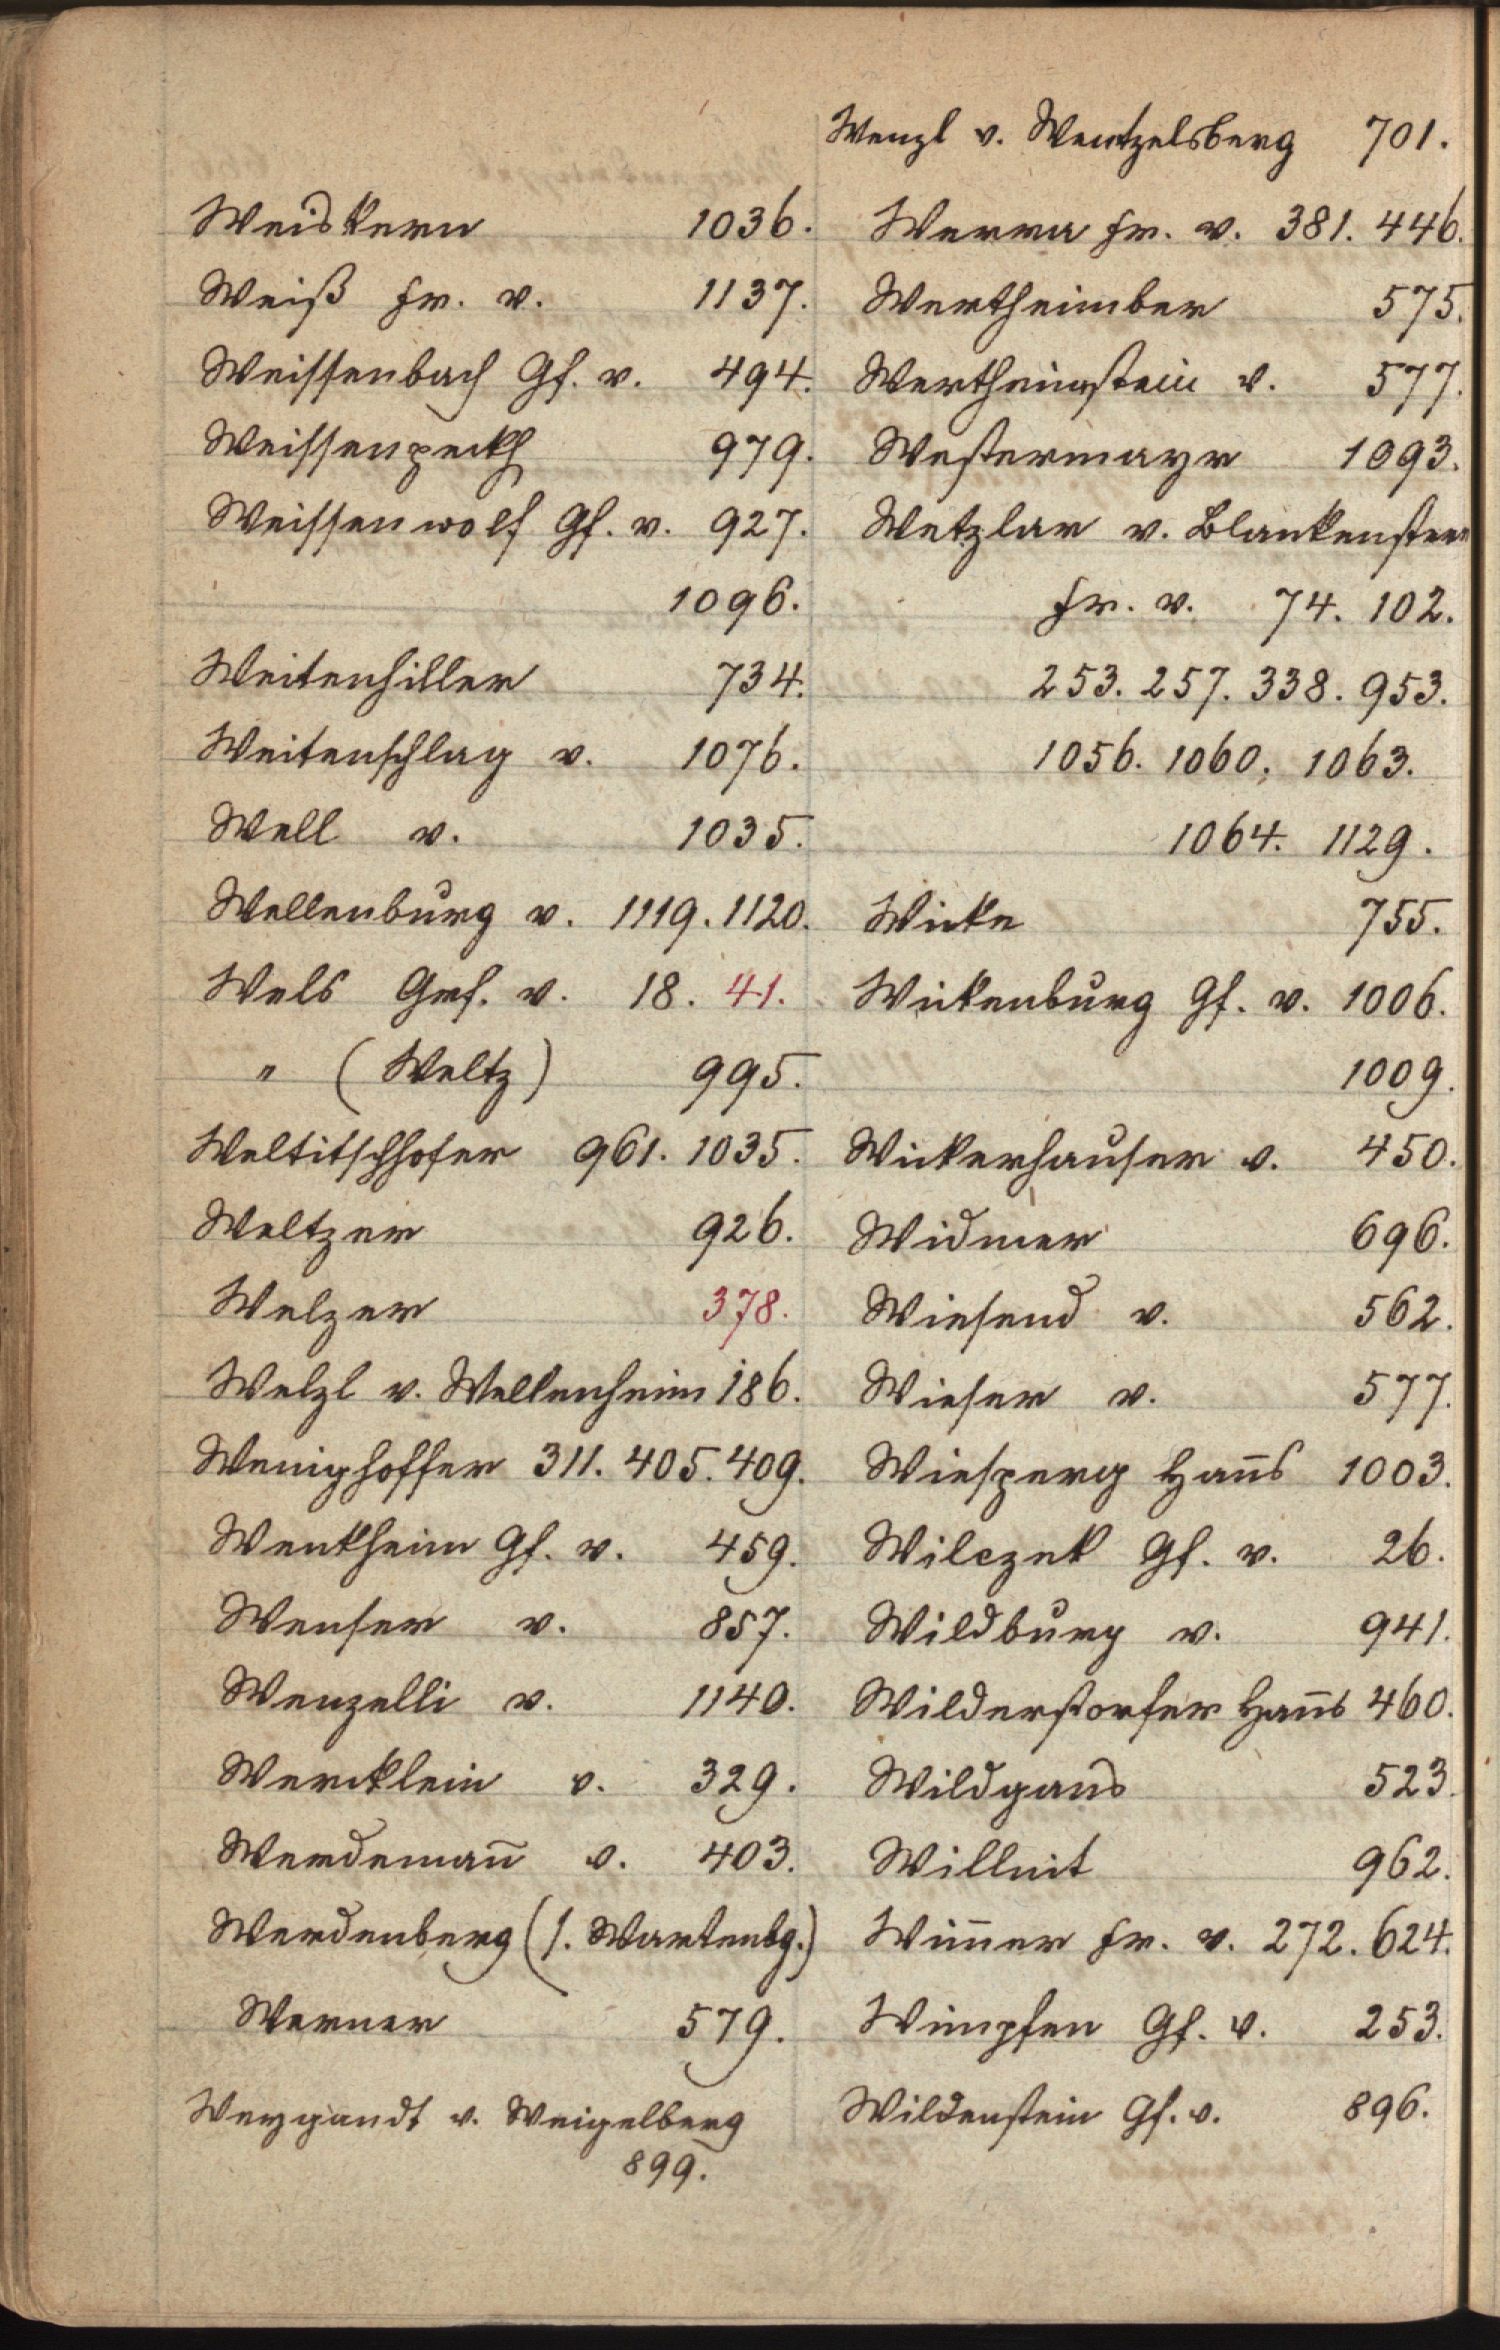 Weiskern 1036.
Weiß Fr. v. 1137.
Weissenbach Gf. v. 494.
Weissenpeckh 979.
Weissenwolf Gf. v. 927.
1096.
Weitenhiller 734.
Weitenschlag v. 1076.
Well v. 1035.
Wellenburg v. 1119. 1120.
Wels Grf. v. 18. 41.
" (Weltz) 995.
Weltitschhofer 961. 1035.
Weltzer 926.
Welzer 378.
Welzl v. Wellenheim 186.
Wenighoffer 311. 405. 409.
Wenkheim Gf. v. 459.
Wenser v. 857.
Wenzelli v. 1140.
Wercklein v. 329.
Werdemañ v. 403.
Werdenberg (s. Wartenbg.)
Werner 579.
Weygandt v. Weigelberg
899.
Wenzl v. Wentzelsberg 701.
Werra Fr. v. 381. 446.
Wertheimber 575.
Wertheimstein v. 577.
Westermayr 1093.
Wetzlar v. Blankenstern
Fr. v. 74. 102.
253. 257. 338. 953.
1056. 1060. 1063.
1064. 1129.
Wicke 755.
Wickenburg Gf. v. 1006.
1009.
Wickerhauser v. 450.
Widmer 696.
Wiesend v. 562.
Wieser v. 577.
Wiesperg Hañs 1003.
Wilczek Gf. v. 26.
Wildburg v. 941.
Wilderstorfer Hañs 460.
Wildgans 523.
Willnit 962.
Wim̄er Fr. v. 272. 624.
Wimpfen Gf. v. 253.
Wildenstein Gf. v. 896.